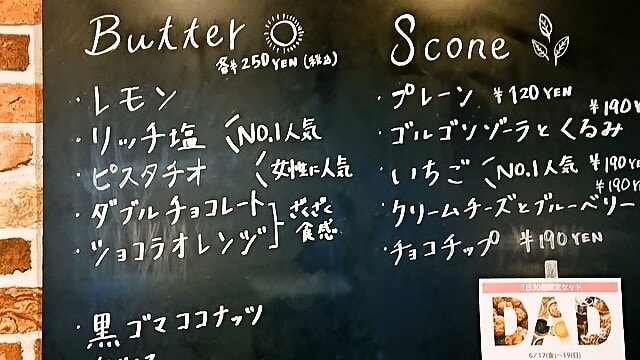 Butter
各¥250YEN (税込)
・レモン
・リッチ塩 NO.1人気
・ピスタチオ 女性に人気
・ダブルチョコレート
・ショコラオレンジ
ざくざく
食感
・黒ゴマココナッツ
Scone
・プレーン ¥120YEN
・ゴルゴンゾーラとくるみ ¥190
・いちご NO.1人気 ¥190YEN
・クリームチーズとブルーベリー ¥190
・チョコチップ ¥190YEN
1日30個限定セット
DAD
6/17(金)~19(日)